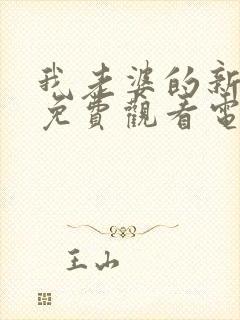 我老婆的新
免費觀看電
王山